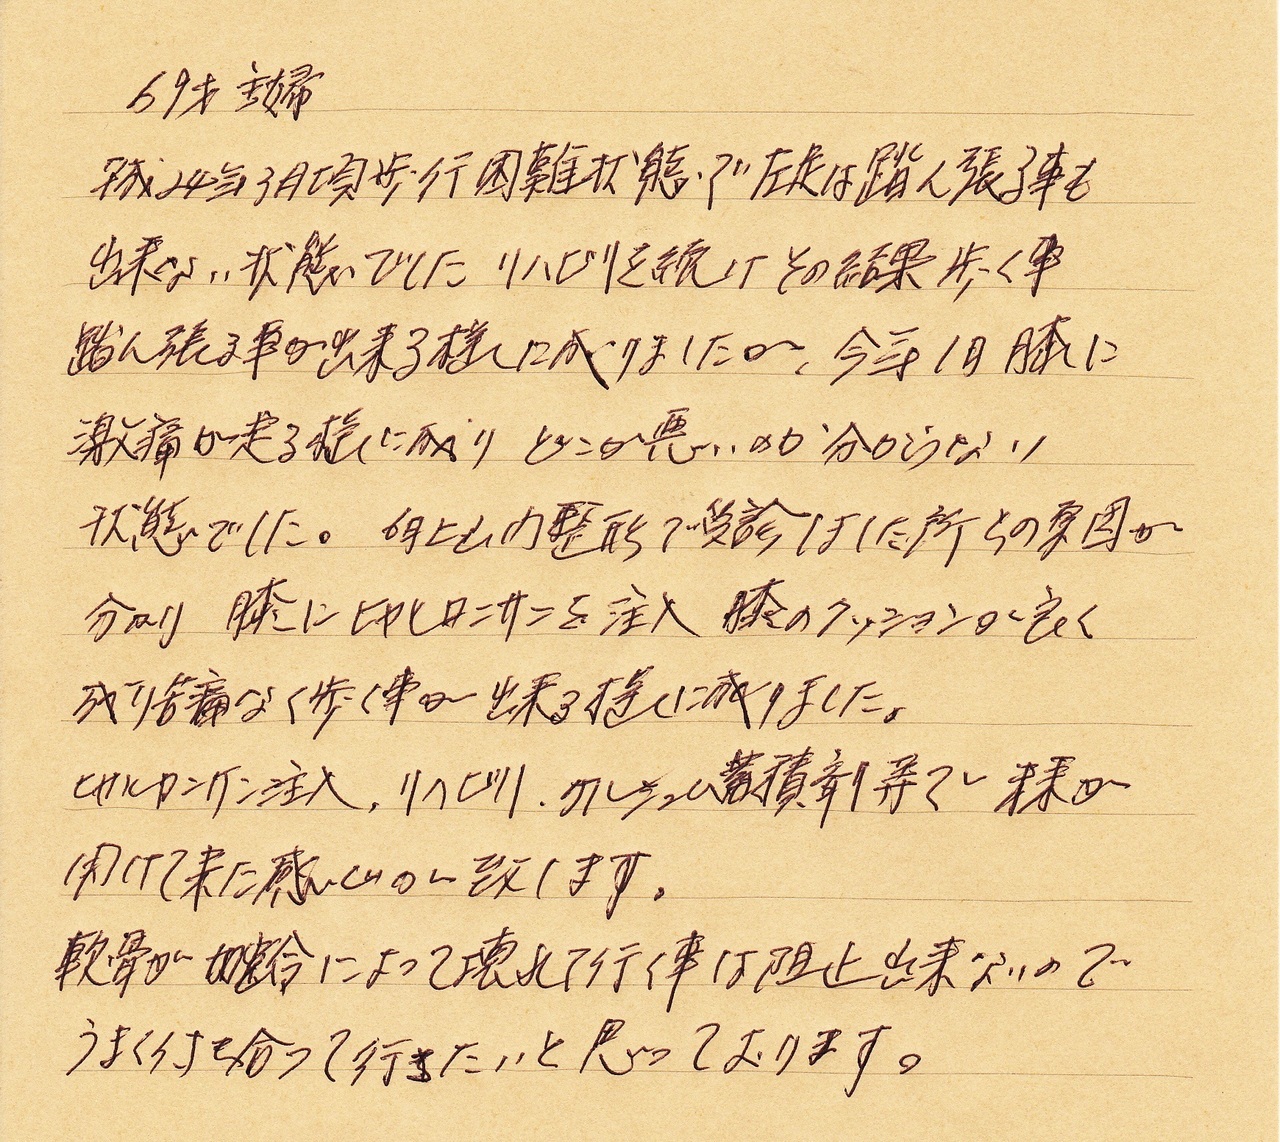 69才 主婦
平成24年3月頃歩行困難状態で左足は踏ん張る事も
出来ない状態でした リハビリを続け その結果 歩く事
踏ん張る事が出来る様に成りましたが、今年1月 膝に
激痛が走る様に成り どこが悪いのか 分からない
状態でした。 6月上山内整形で受診しました所 その原因が
分り 膝にヒヤルロンサンを注入 膝のクッションが良く
成り苦痛なく歩く事が出来る様に成りました。
ヒヤルロンサン注入、リハビリ、カルシューム蓄積剤等で 未来が
開けて来た感じが致します。
軟骨が加齢によって壊れて行く事は阻止出来ないので
うまく付き合って行きたいと思っております。